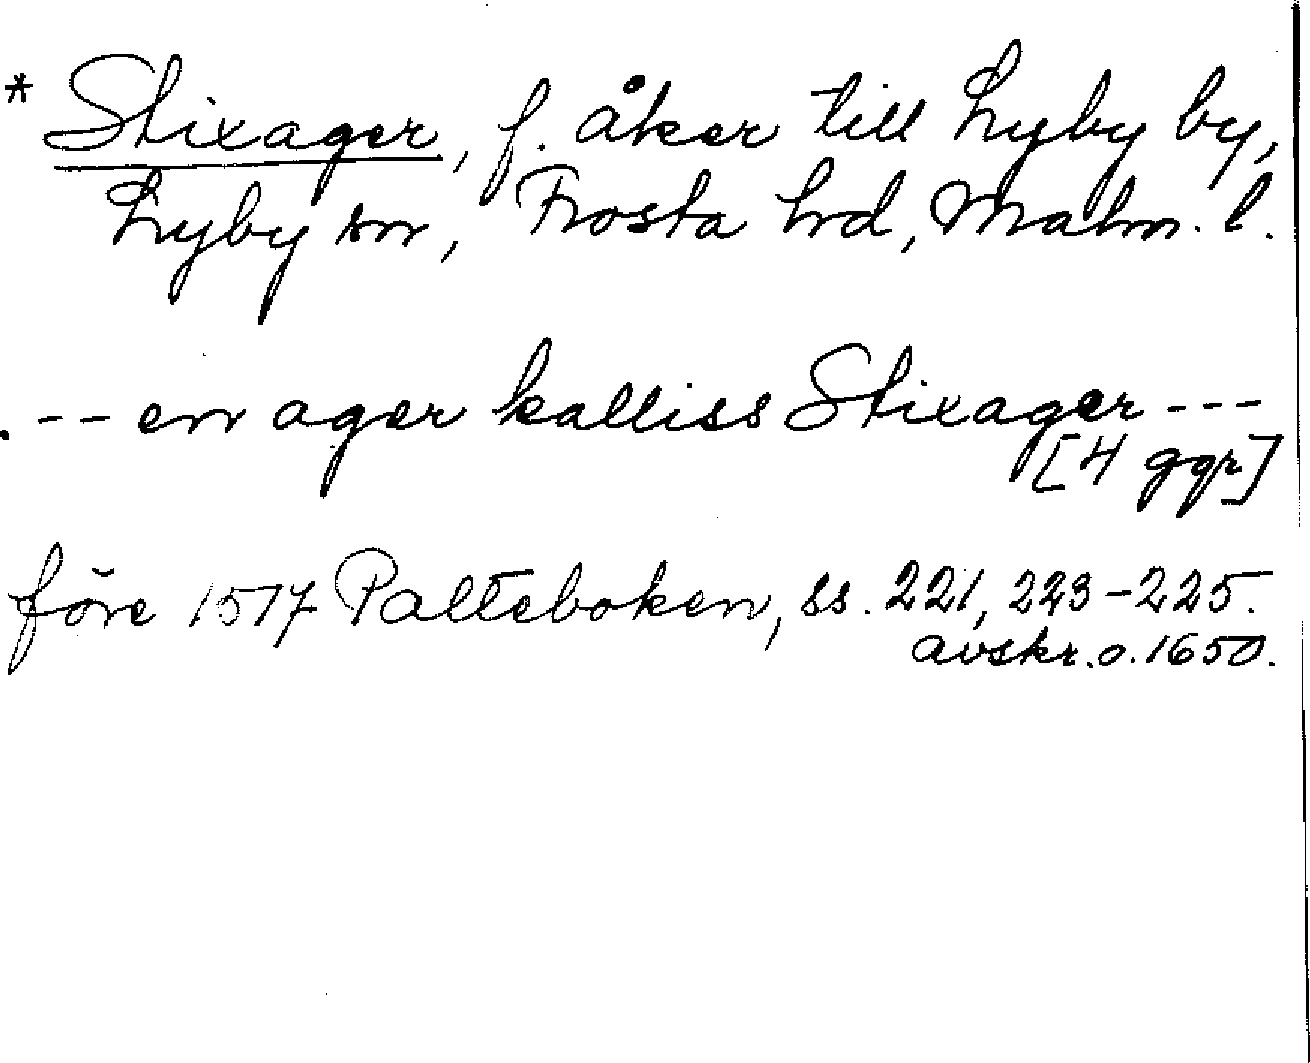 * Stixager, f. åker till Lyby by,
Lyby sn, Frosta hd, Malm. l.
. -- en ager kalliss Stixager ---
[4 ggr]
före 1517 Palteboken, ss. 221, 223-225.
avskr. o. 1650.